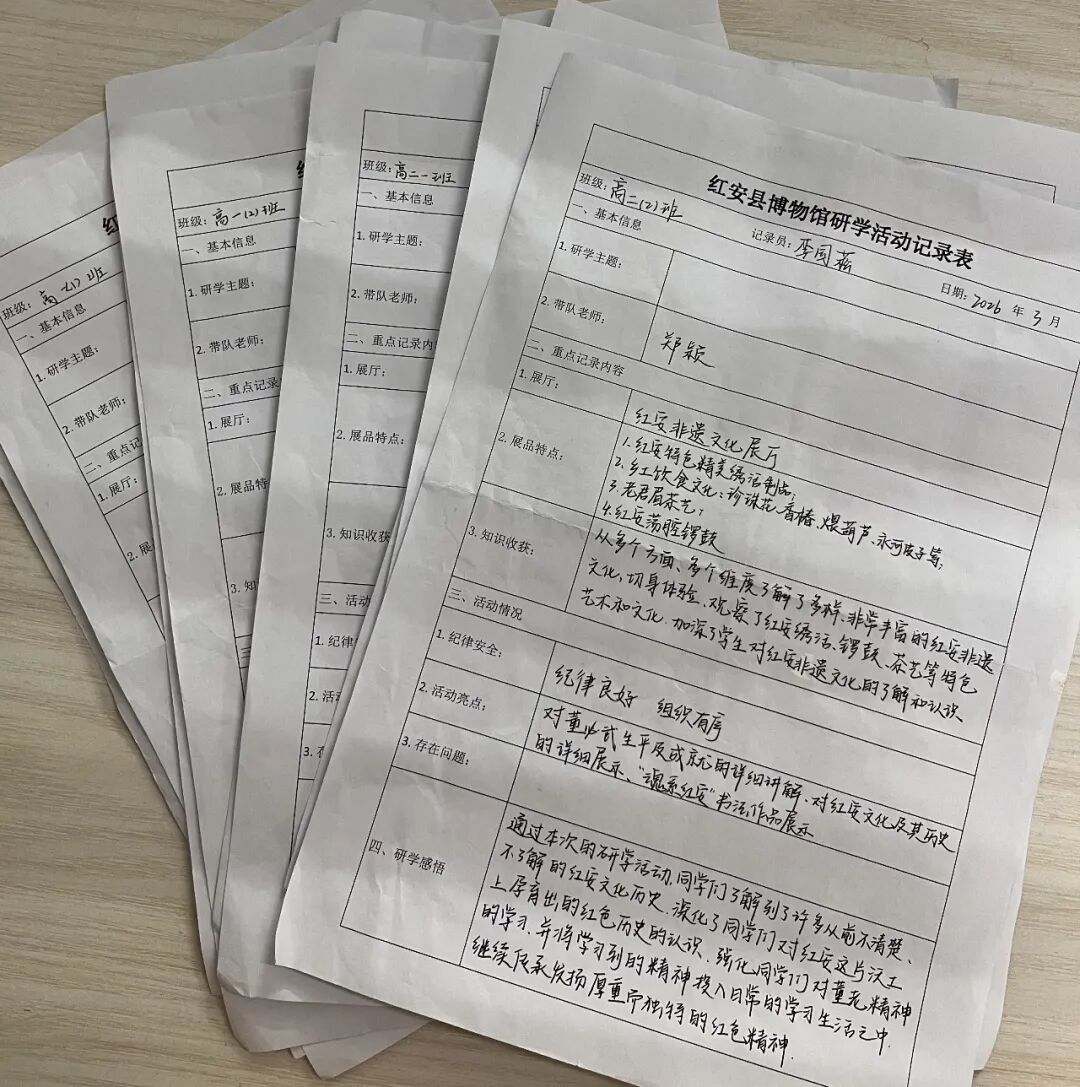 红安县博物馆研学活动记录表
班级：高二(2)班
记录员：李国蕊
日期：2026 年 3 月
一、基本信息
1. 研学主题：
2. 带队老师：
郑颖
二、重点记录内容
1. 展厅：
红安非遗文化展厅
2. 展品特点：
1. 红安特色精美绣活制品；
2. 红饮食文化：珍珠花、香椿、煨葫芦、永河皮子等；
3. 老君眉茶艺；
4. 红安荡腔锣鼓
3. 知识收获：
从多个方面、多个维度了解了多样、非常丰富的红安非遗
文化，切身体验、观察了红安绣活、锣鼓、茶艺等特色
艺术和文化.加深了学生对红安非遗文化的了解和认识
三、活动情况
1. 纪律安全：
纪律良好 组织有序
2. 活动亮点：
对董必武生平及成就的详细讲解、对红安文化及其历史
的详细展示、“魂系红安”书法作品展示
3. 存在问题：
四、研学感悟
通过本次的研学活动,同学们了解到了许多从前不清楚、
不了解的红安文化历史.深化了同学们对红安这片沃土
上孕育出的红色历史的认识.强化同学们对董老精神
的学习.并将学习到的精神投入日常的学习生活之中.
继续传承发扬厚重而独特的红色精神.
班级：高二一班
一、基本信息
1. 研学主题：
2. 带队老师：
二、重点记录内
1. 展厅：
2. 展品特点：
3. 知识收获
三、活动
1. 纪律
2. 活动
3. 存
班级：高一(2)班
一、基本信息
1. 研学主题：
2. 带队老师：
二、重点记录
1. 展厅：
2. 展品特
3. 知
班级：高
班
一、基本信息
1. 研学主题：
2. 带队老师：
二、重点记
1. 展厅：
2. 展